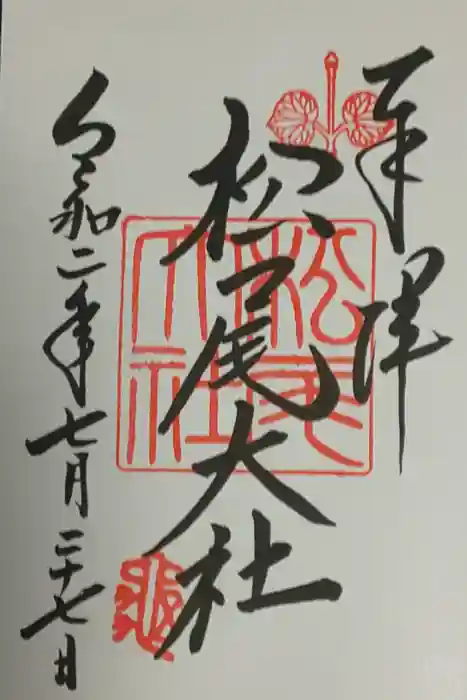 奉拝
松尾大社
松尾大社
令和二年七月二十七日